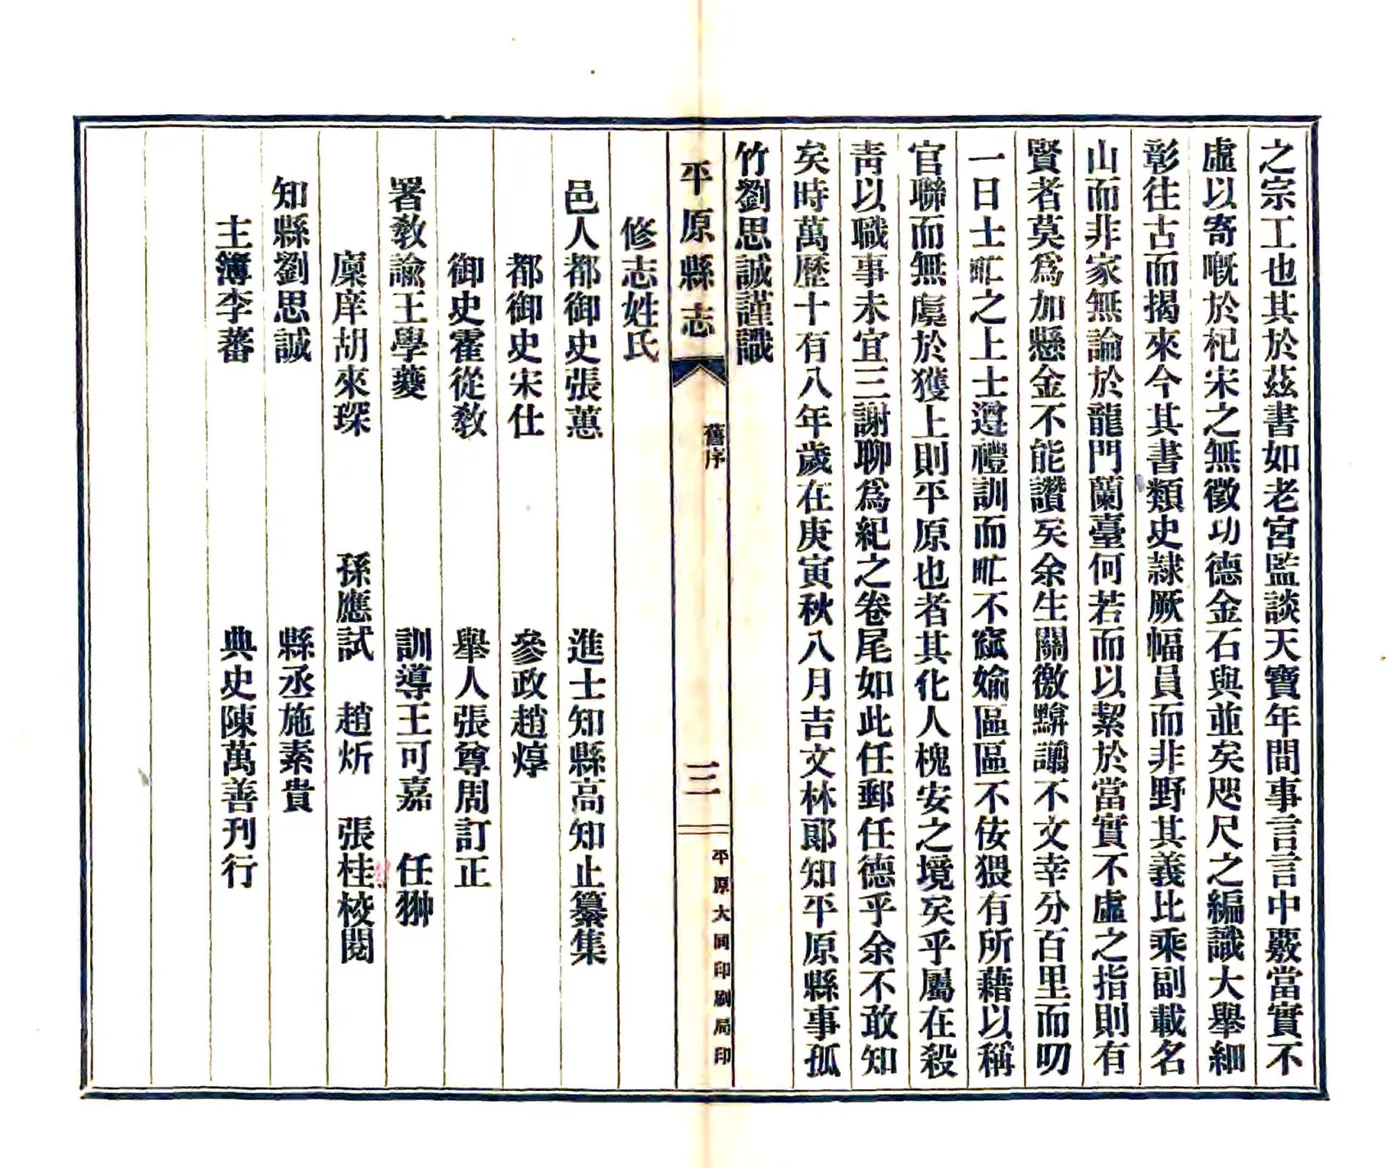 之宗工也其於茲書如老宮監談天寶年間事言言中覈當實不
虛以寄嘅於杞宋之無徵功德金石與並矣咫尺之編識大舉細
彰往古而揭來今其書類史隷厥幅員而非野其義比乘副載名
山而非家無論於龍門蘭臺何若而以絜於當實不虛之指則有
賢者莫爲加懸金不能讚矣余生關徼黭謭不文幸分百里而叨
一日士甿之上士遵禮訓而甿不窳媮區區不佞猥有所藉以稱
官聯而無虞於獲上則平原也者其化人槐安之境矣乎屬在殺
靑以職事未宜三謝聊爲紀之卷尾如此任郵任德乎余不敢知
矣時萬歷十有八年歲在庚寅秋八月吉文林郎知平原縣事孤
竹劉思誠謹識
平原縣志
舊序
三
平原大同印刷局印
修志姓氏
邑人都御史張蕙 進士知縣高知止纂集
都御史宋仕 參政趙焞
御史霍從敎 舉人張尊周訂正
署敎諭王學夔 訓導王可嘉 任翀
廩庠胡來琛 孫應試 趙炘 張桂校閱
知縣劉思誠 縣丞施素貴
主簿李蕃 典史陳萬善刊行